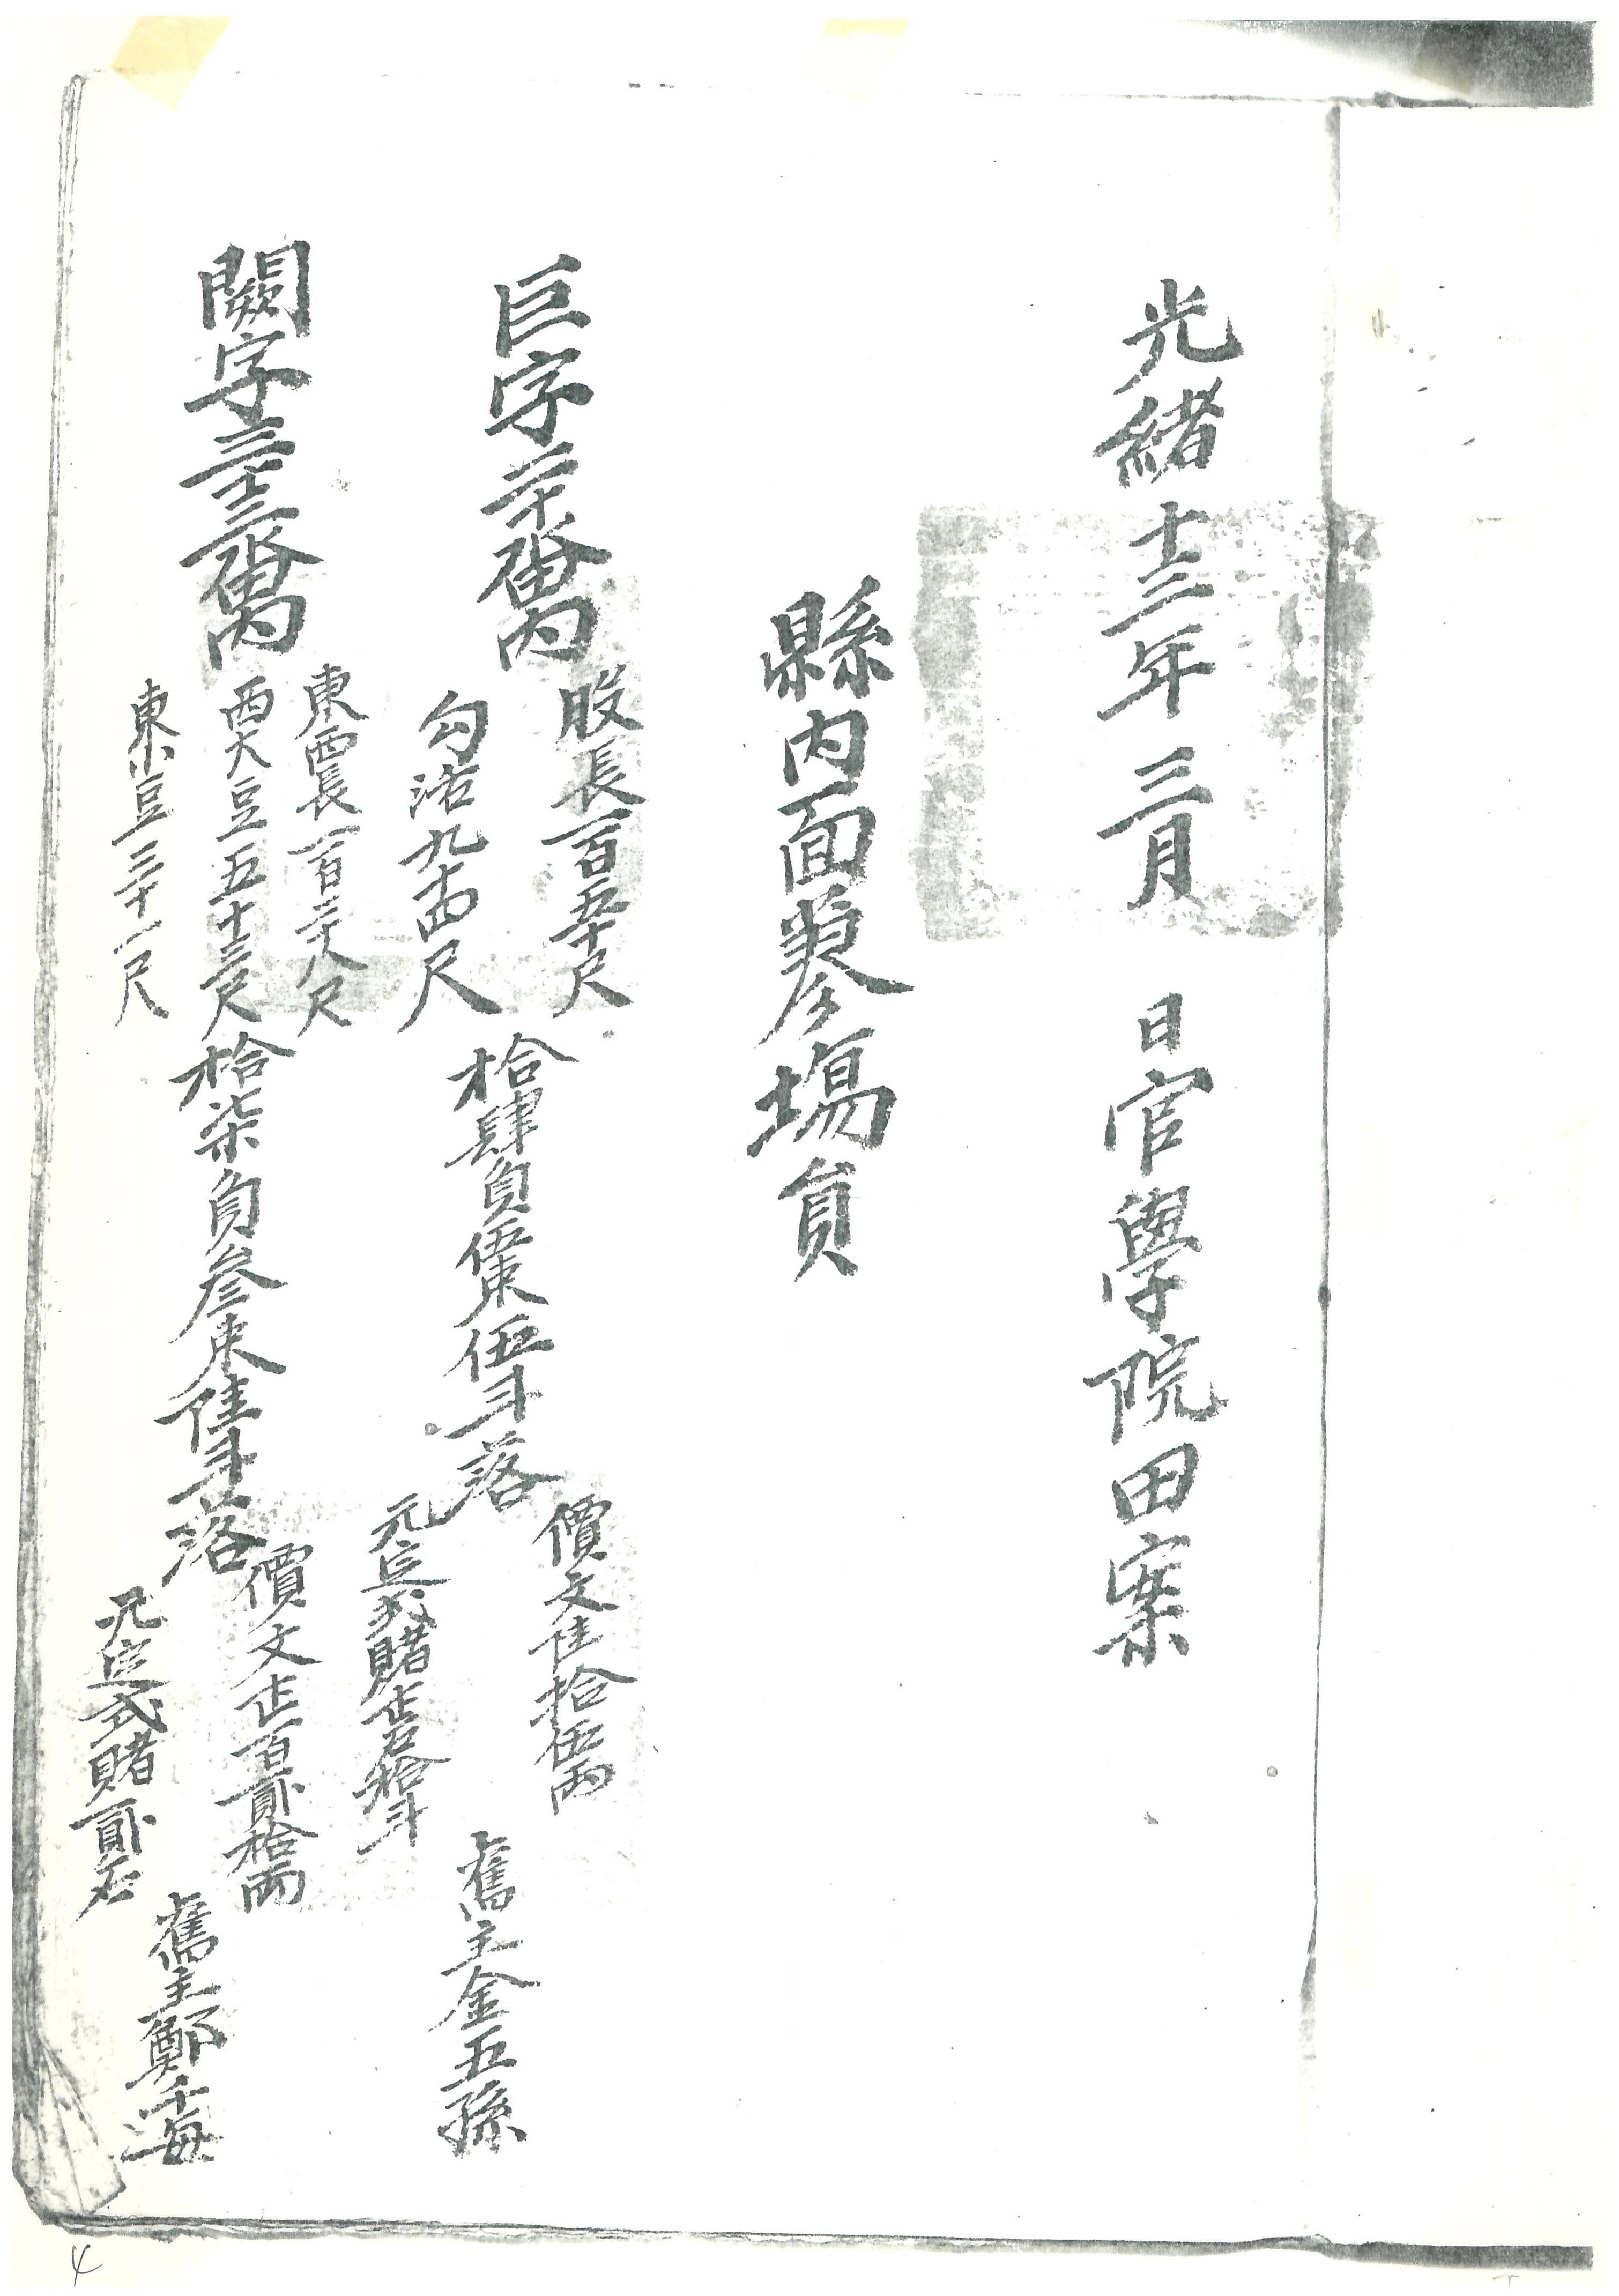 光緖十二年三月 日官學院田案
縣內面蔘場員
巨字二十畓內
股長一百五十尺
勾活九十四尺
拾肆負伍束伍斗落
價文陸拾伍兩
元定式賭壱石拾斗
舊主金五孫
闕字三十三畓內
東西長一百三十八尺
西大豆五十三尺
東小豆三十一尺
拾柒負參束陸斗落
價文壱百貳拾兩
元定式賭貳石
舊主鄭千海
4